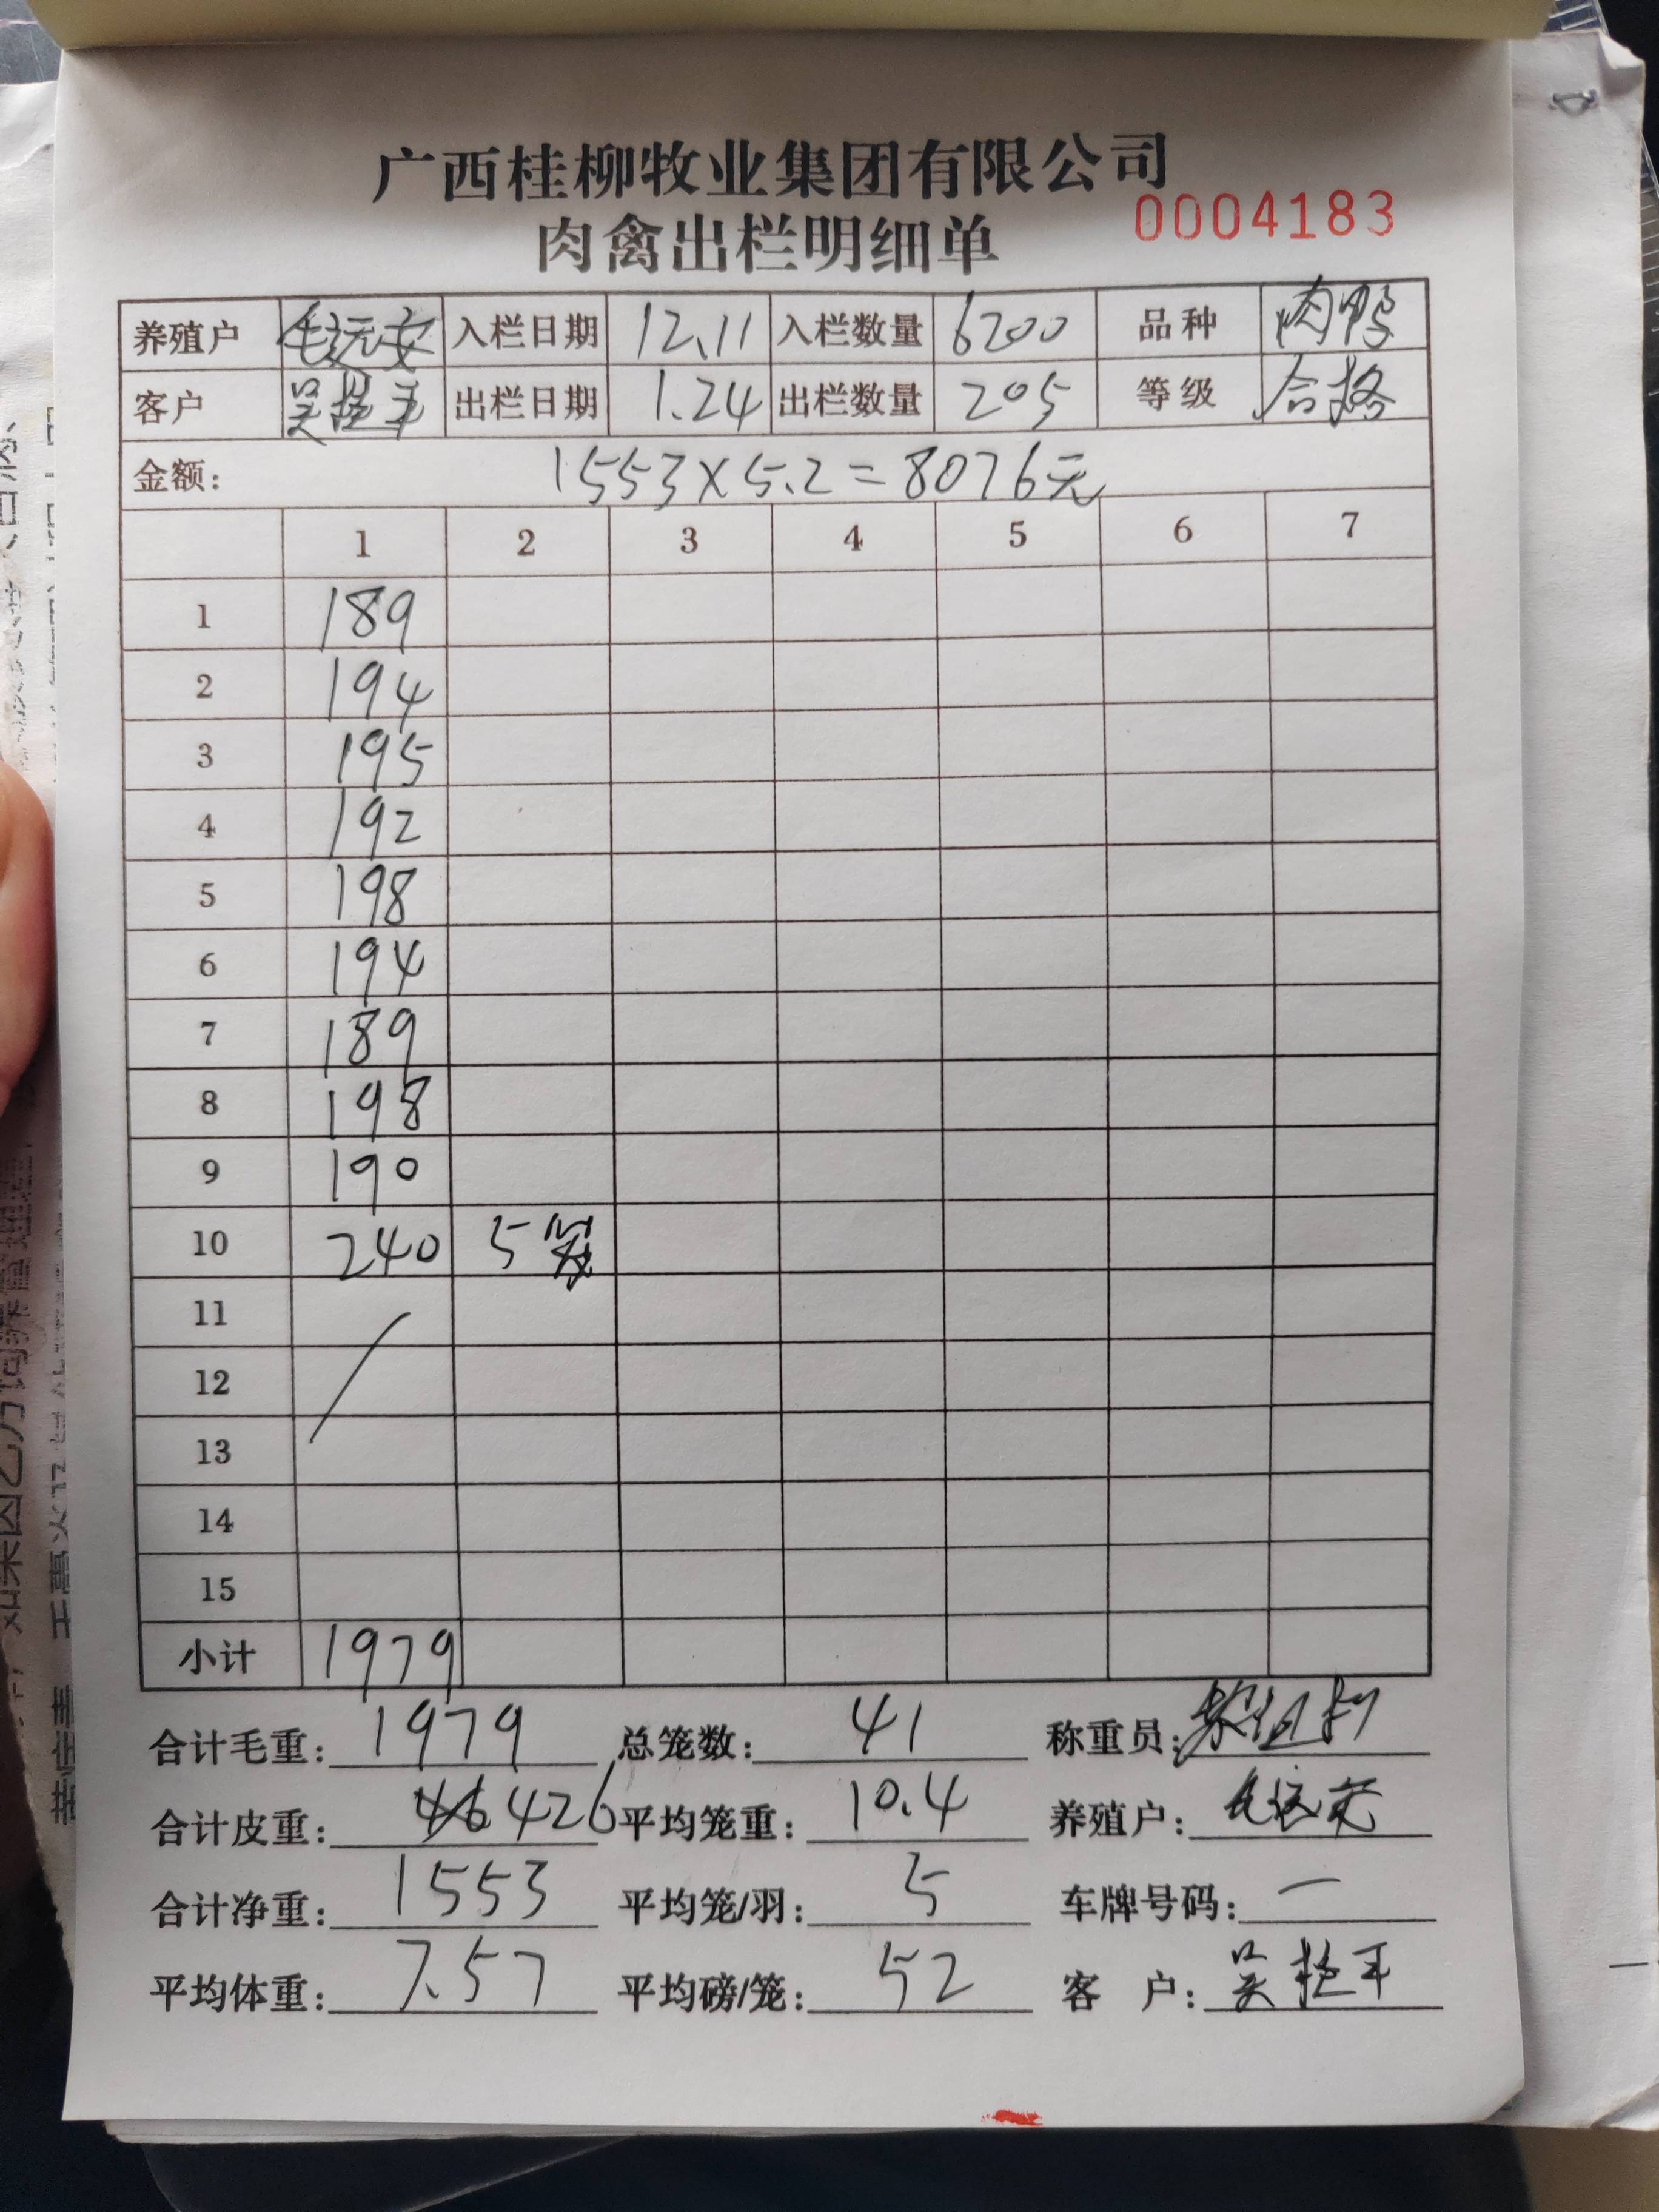 广西桂柳牧业集团有限公司
肉禽出栏明细单 0004183
养殖户 毛远安 入栏日期 12.11 入栏数量 6200 品种 肉鸭
客户 吴 出栏日期 1.24 出栏数量 205 等级 合格
金额: 1553×5.2=8076元
1 2 3 4 5 6 7
1 189
2 194
3 195
4 192
5 198
6 194
7 189
8 198
9 190
10 240 5笼
11
12
13
14
15
小计 1979
合计毛重: 1979 总笼数: 41 称重员:
合计皮重: 426 平均笼重: 10.4 养殖户: 毛远安
合计净重: 1553 平均笼/羽: 5 车牌号码: 一
平均体重: 7.57 平均磅/笼: 52 客 户: 吴